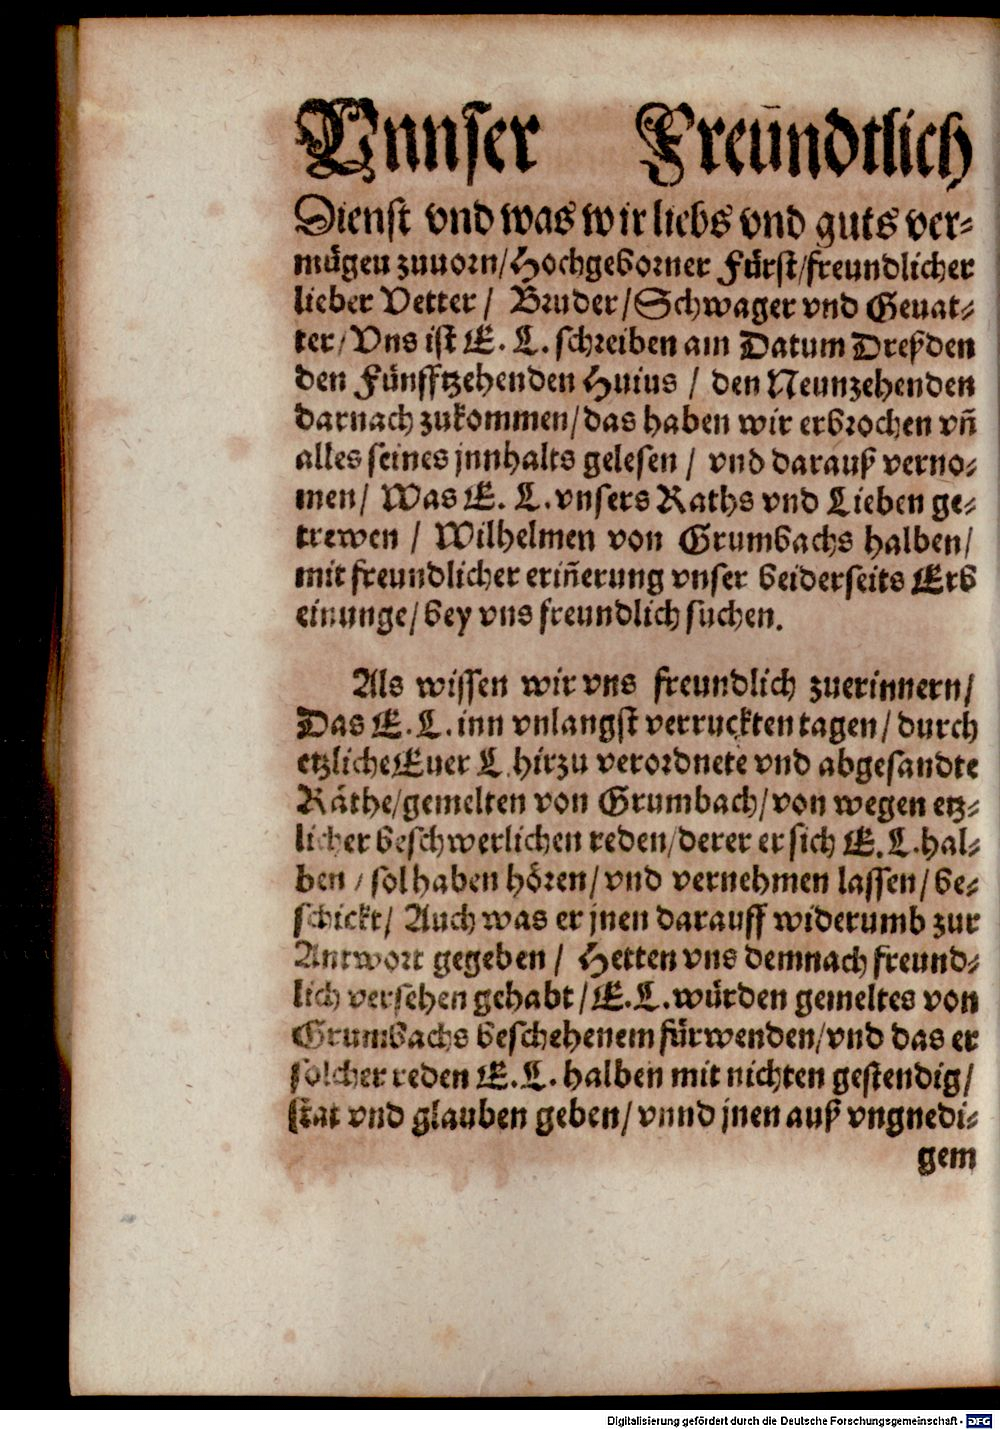 Vnnser Freün̄dtlich
Dienst vnd was wir liebs vnd guts ver⸗
mügen zuuorn/Hochgeborner Fürst/freundlicher
lieber Vetter/ Bruder/Schwager vnd Geuat⸗
ter/Vns ist E. L. schreiben am Datum Dreßden
den Fünfftzehenden Huius / den Neunzehenden
darnach zukommen/das haben wir erbrochen vñ
alles seines jnnhalts gelesen / vnd darauß verno⸗
men/ Was E. L. vnsers Raths vnd Lieben ge⸗
trewen / Wilhelmen von Grumbachs halben/
mit freundlicher eriñerung vnser beiderseits Erb
einunge/bey vns freundlich suchen.
Als wissen wir vns freundlich zuerinnern/
Das E. L. inn vnlangst verruckten tagen/durch
etzliche Euer L. hirzu verordnete vnd abgesandte
Räthe/gemelten von Grumbach/von wegen etz⸗
licher beschwerlichen reden/derer er sich E. L. hal⸗
ben / sol haben hören/vnd vernehmen lassen/be⸗
schickt/ Auch was er jnen darauff widerumb zur
Antwort gegeben / Hetten vns demnach freund⸗
lich versehen gehabt/E. L. würden gemeltes von
Grumbachs beschehenem fürwenden/vnd das er
solcher reden E. L. halben mit nichten gestendig/
stat vnd glauben geben/vnnd jnen auß vngnedi⸗
gem
Digitalisierung gefördert durch die Deutsche Forschungsgemeinschaft - DFG